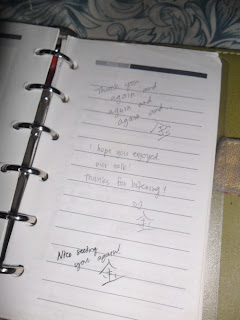 Thank you
again and
again and
again and...
I hope you enjoyed
our
Thanks for listening!
Nice seeing
you again!